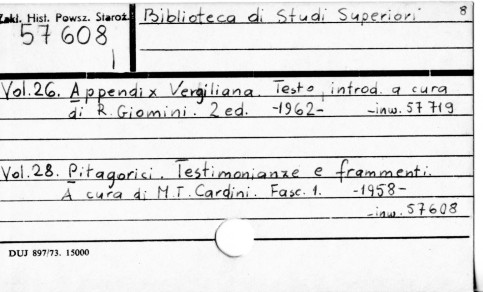 Zakł. Hist. Powsz. Staroż.
57608
Biblioteca di Studi Superiori
8
Vol.26. Appendix Vergiliana. Testo, introd. a cura
di R. Giomini. 2 ed. -1962- -inw. 57719
Vol.28. Pitagorici. Testimonianze e frammenti.
A cura di M.T. Cardini. Fasc. 1. -1958-
-inw. 57608
DUJ 897/73. 15000